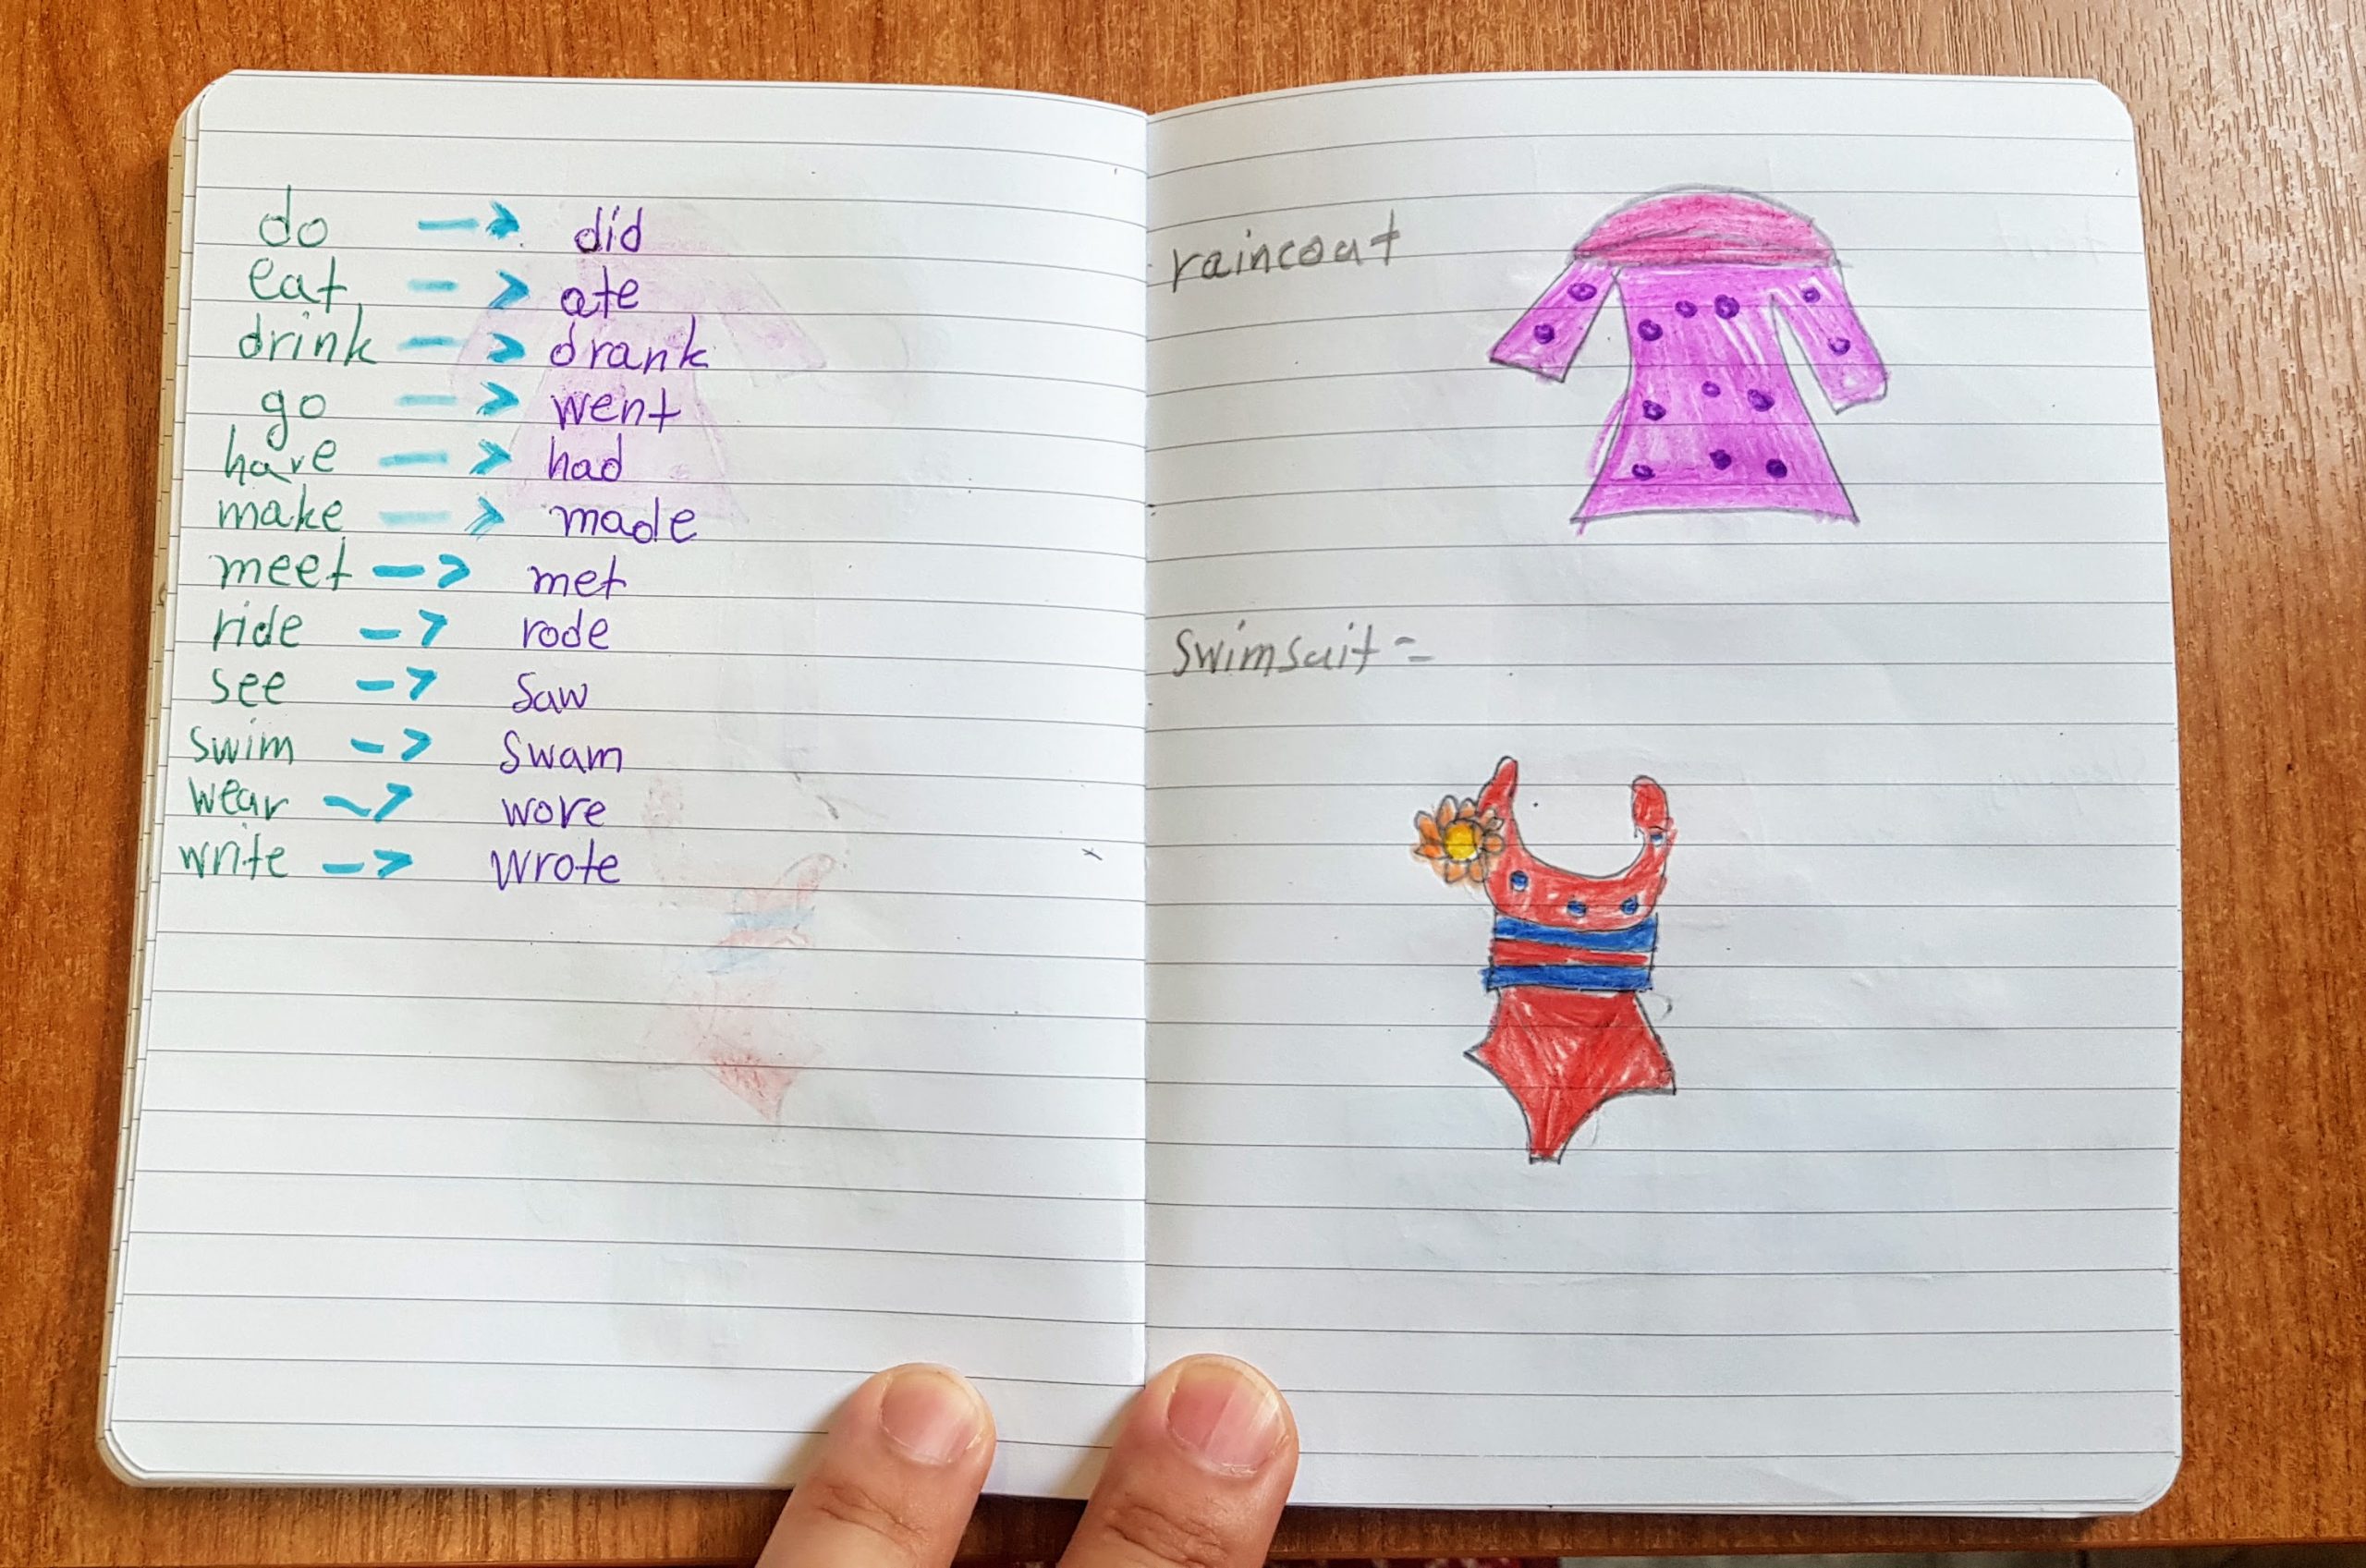 do → did
eat → ate
drink → drank
go → went
have → had
make → made
meet → met
ride → rode
see → saw
swim → swam
wear → wore
write → wrote
raincoat
swimsuit =